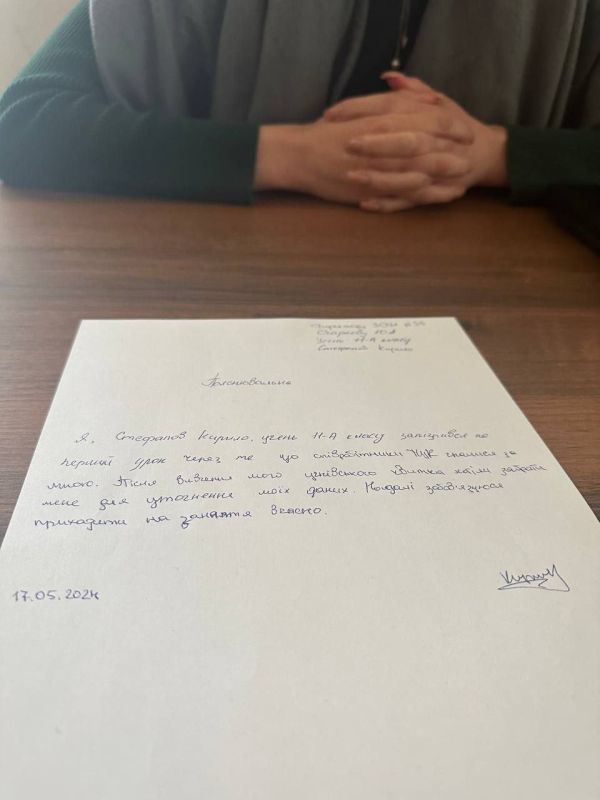 Директору ЗОШ
Учень 11-А класу
Стефанов Кирило
Пояснювальна
Я, Стефанов Кирило, учень 11-А класу запізнився на
перший урок через те що співробітники ТЦК гналися за
мною. Після вивчення мого учнівського квитка хотіли забрати
мене для уточнення моїх даних. Надалі зобов'язуюся
приходити на заняття вчасно.
17.05.2024